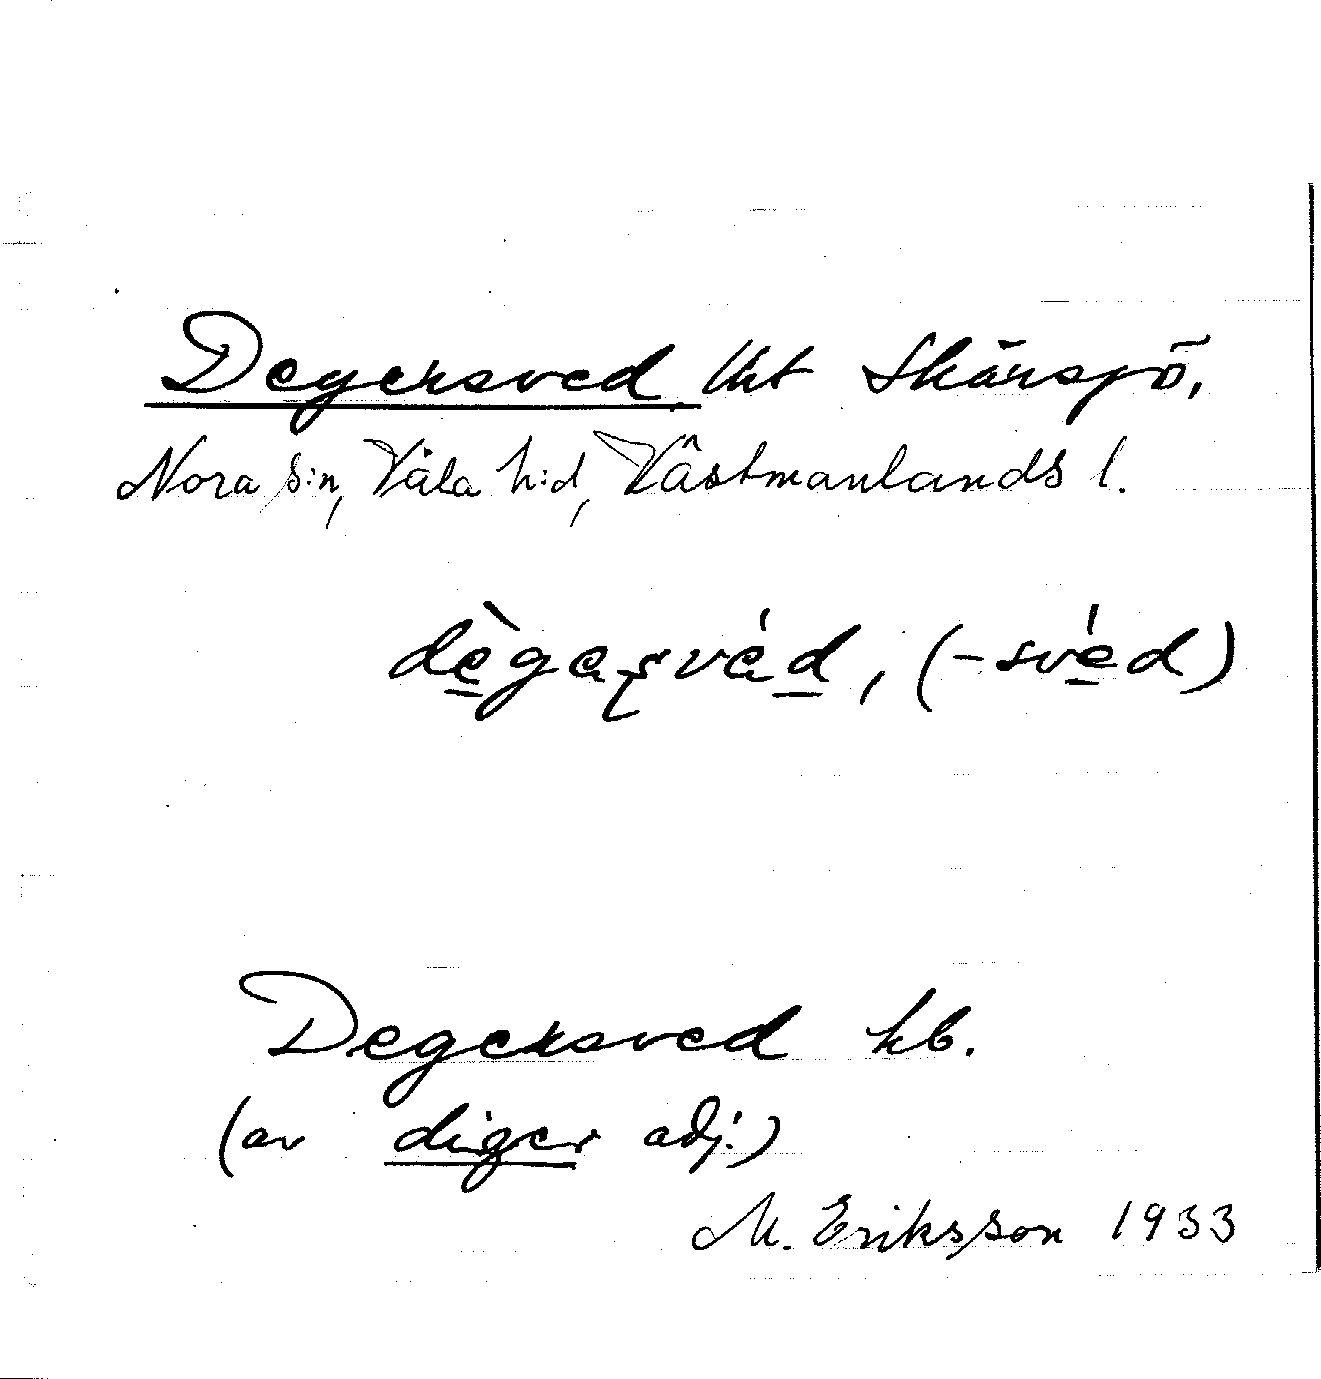 Degersved, Uht Skärsjö,
Nora s:n, Våla h:d, Västmanlands l.
dègaʂvéd, (-svéd)
Degersved hb.
(av diger adj.)
M. Eriksson 1933